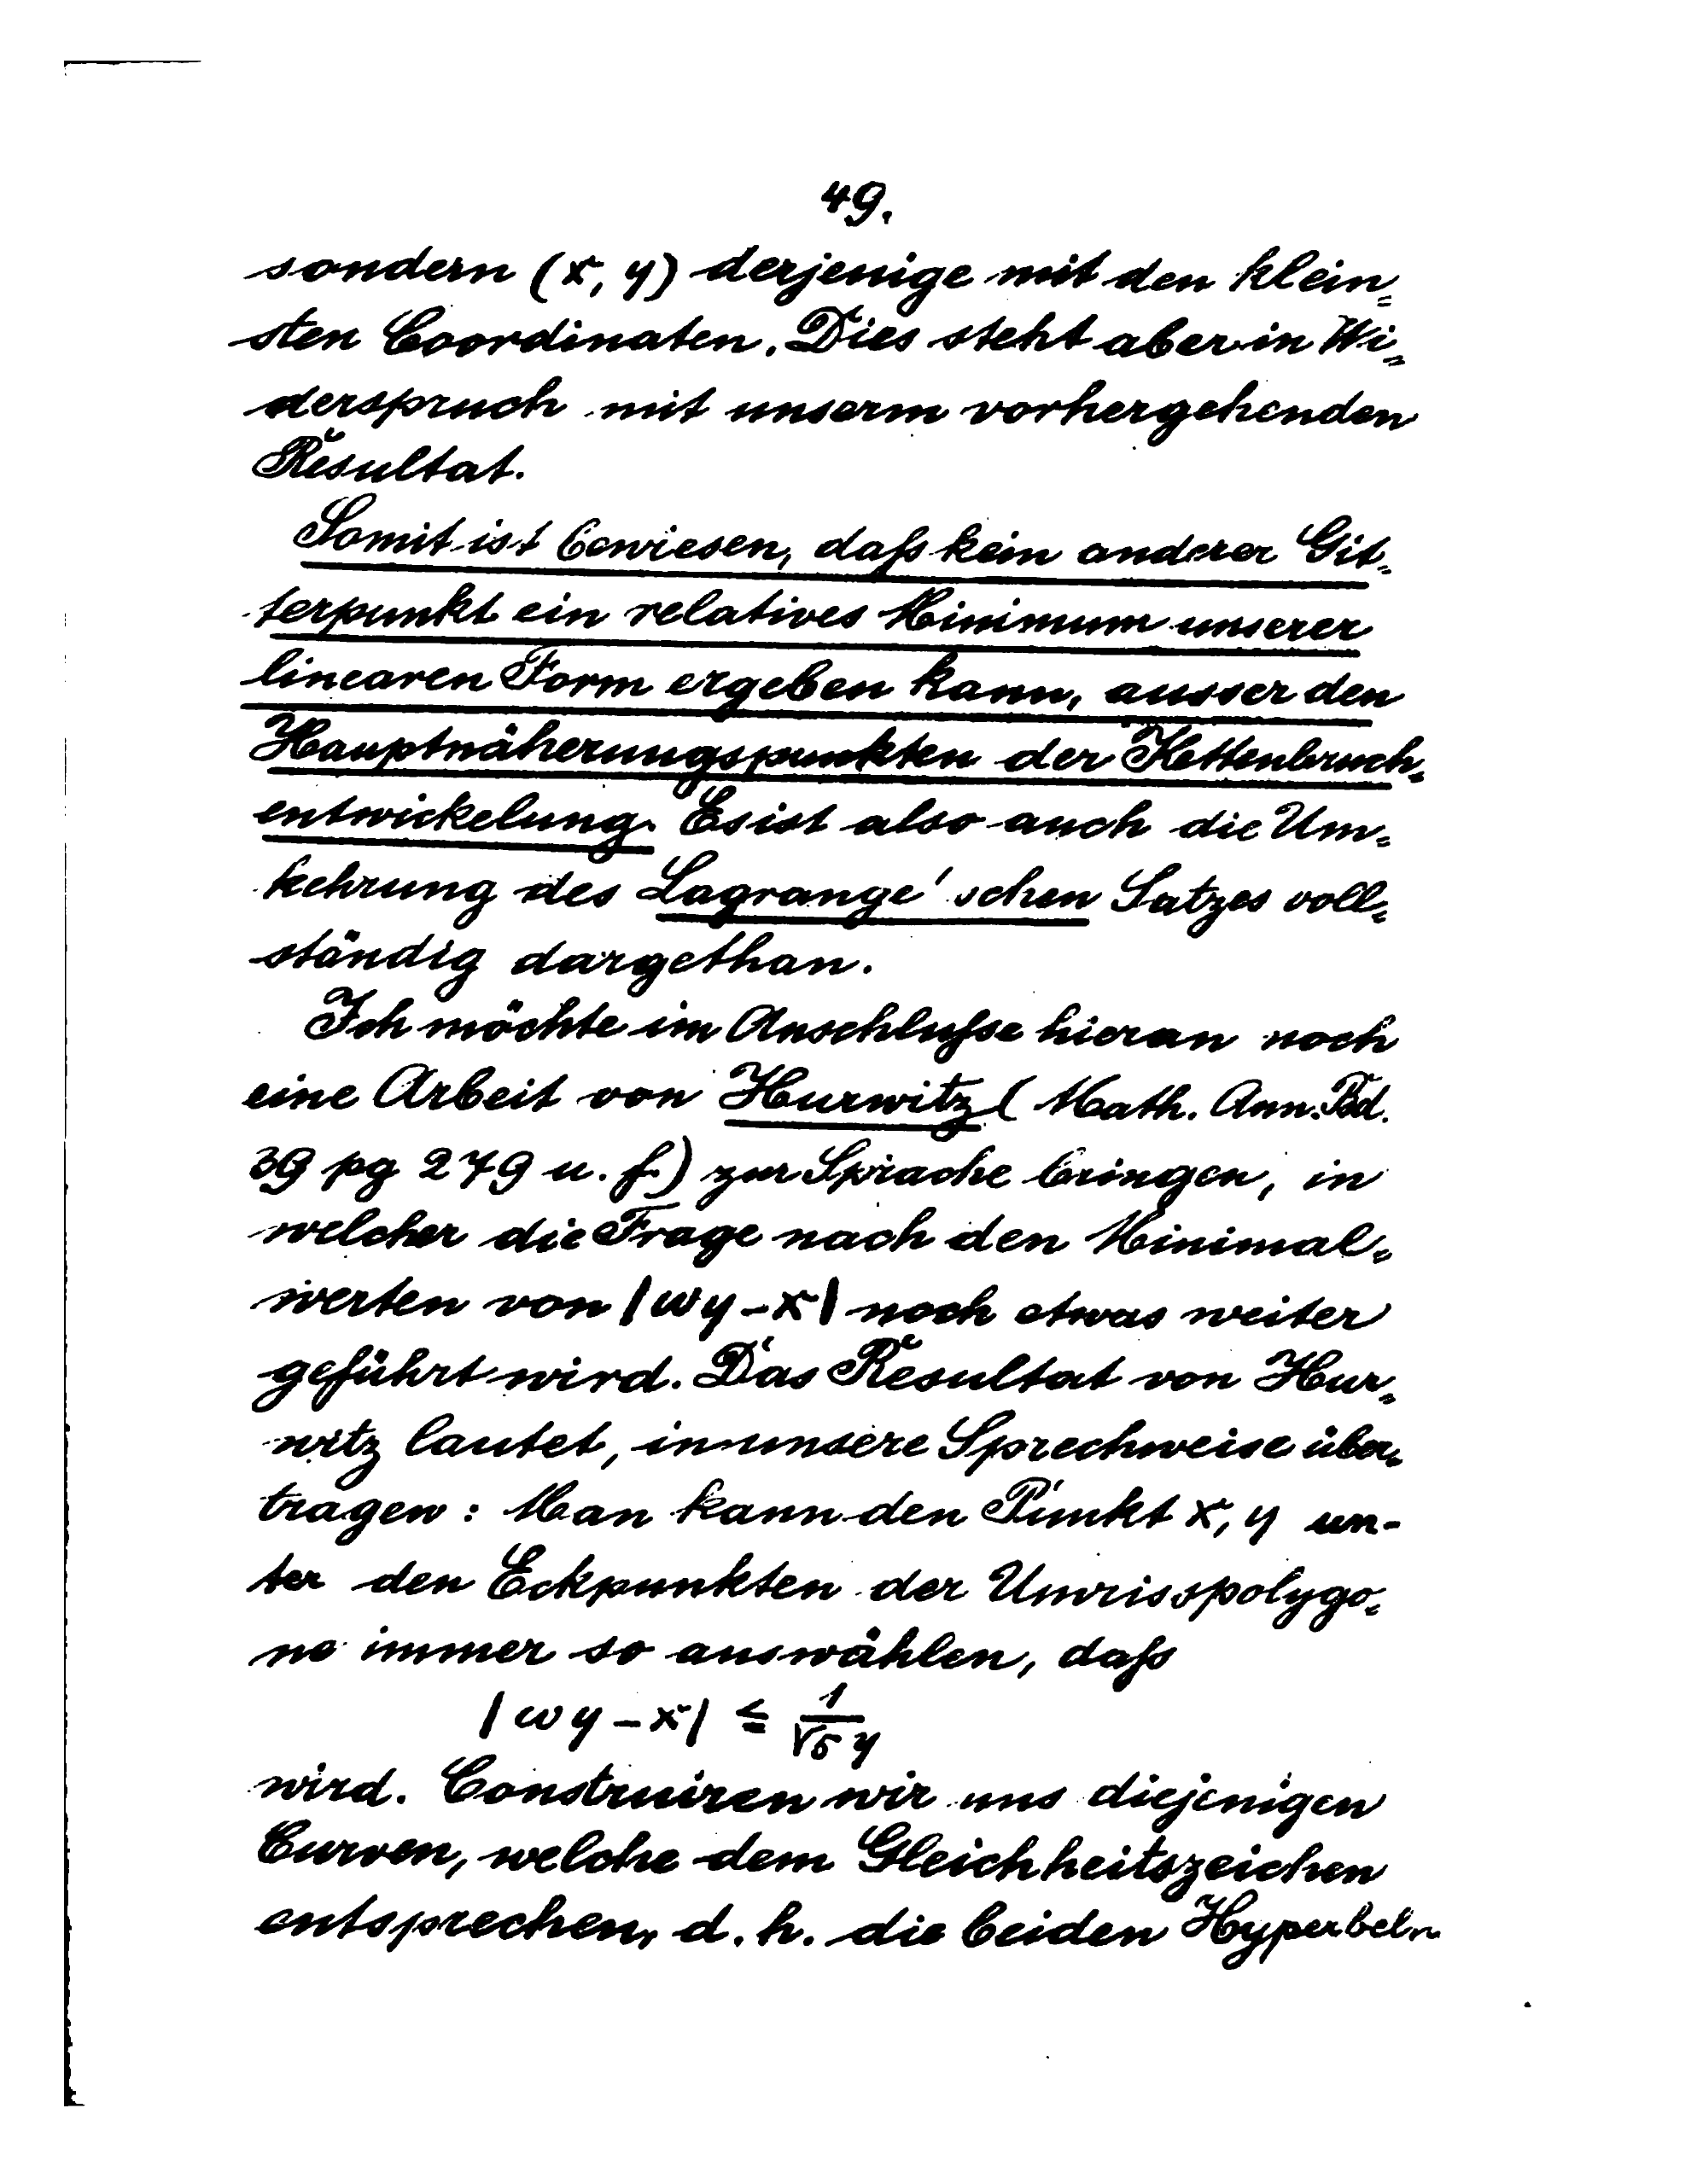 49.
sondern (x, y) derjenige mit den klein=
sten Coordinaten. Dies steht aber in Wi=
derspruch mit unserm vorhergehenden
Resultat.
Somit ist bewiesen, daſs kein anderer Git=
terpunkt ein relatives Minimum unserer
linearen Form ergeben kann, ausser den
Hauptnäherungspunkten der Kettenbruch=
entwickelung. Es ist also auch die Um=
kehrung des Lagrange'schen Satzes voll=
ständig dargethan.
Ich möchte im Anschluſse hieran noch
eine Arbeit von Hurwitz (Math. Ann. Bd.
39 pg 279 u. f.) zur Sprache bringen, in
welcher die Frage nach den Minimal=
werten von |ωy - x| noch etwas weiter
geführt wird. Das Resultat von Hur=
witz lautet, in unsere Sprechweise über=
tragen: Man kann den Punkt x, y un-
ter den Eckpunkten der Umrisspolygo=
ne immer so auswählen, daſs
|ωy - x| ≦ 1/(√5 y)
wird. Construiren wir uns diejenigen
Curven, welche dem Gleichheitszeichen
entsprechen, d. h. die beiden Hyperbeln